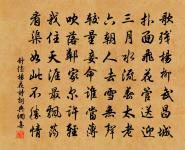 歌殘楊柳武昌城
撲面飛花管送迎
三月水流春太老
六朝人去雪無聲
較量妾命誰當薄
吹落鄰家爾許輕
我住天涯最飄蕩
看渠如此不勝情
舒位楊花詩詞典網